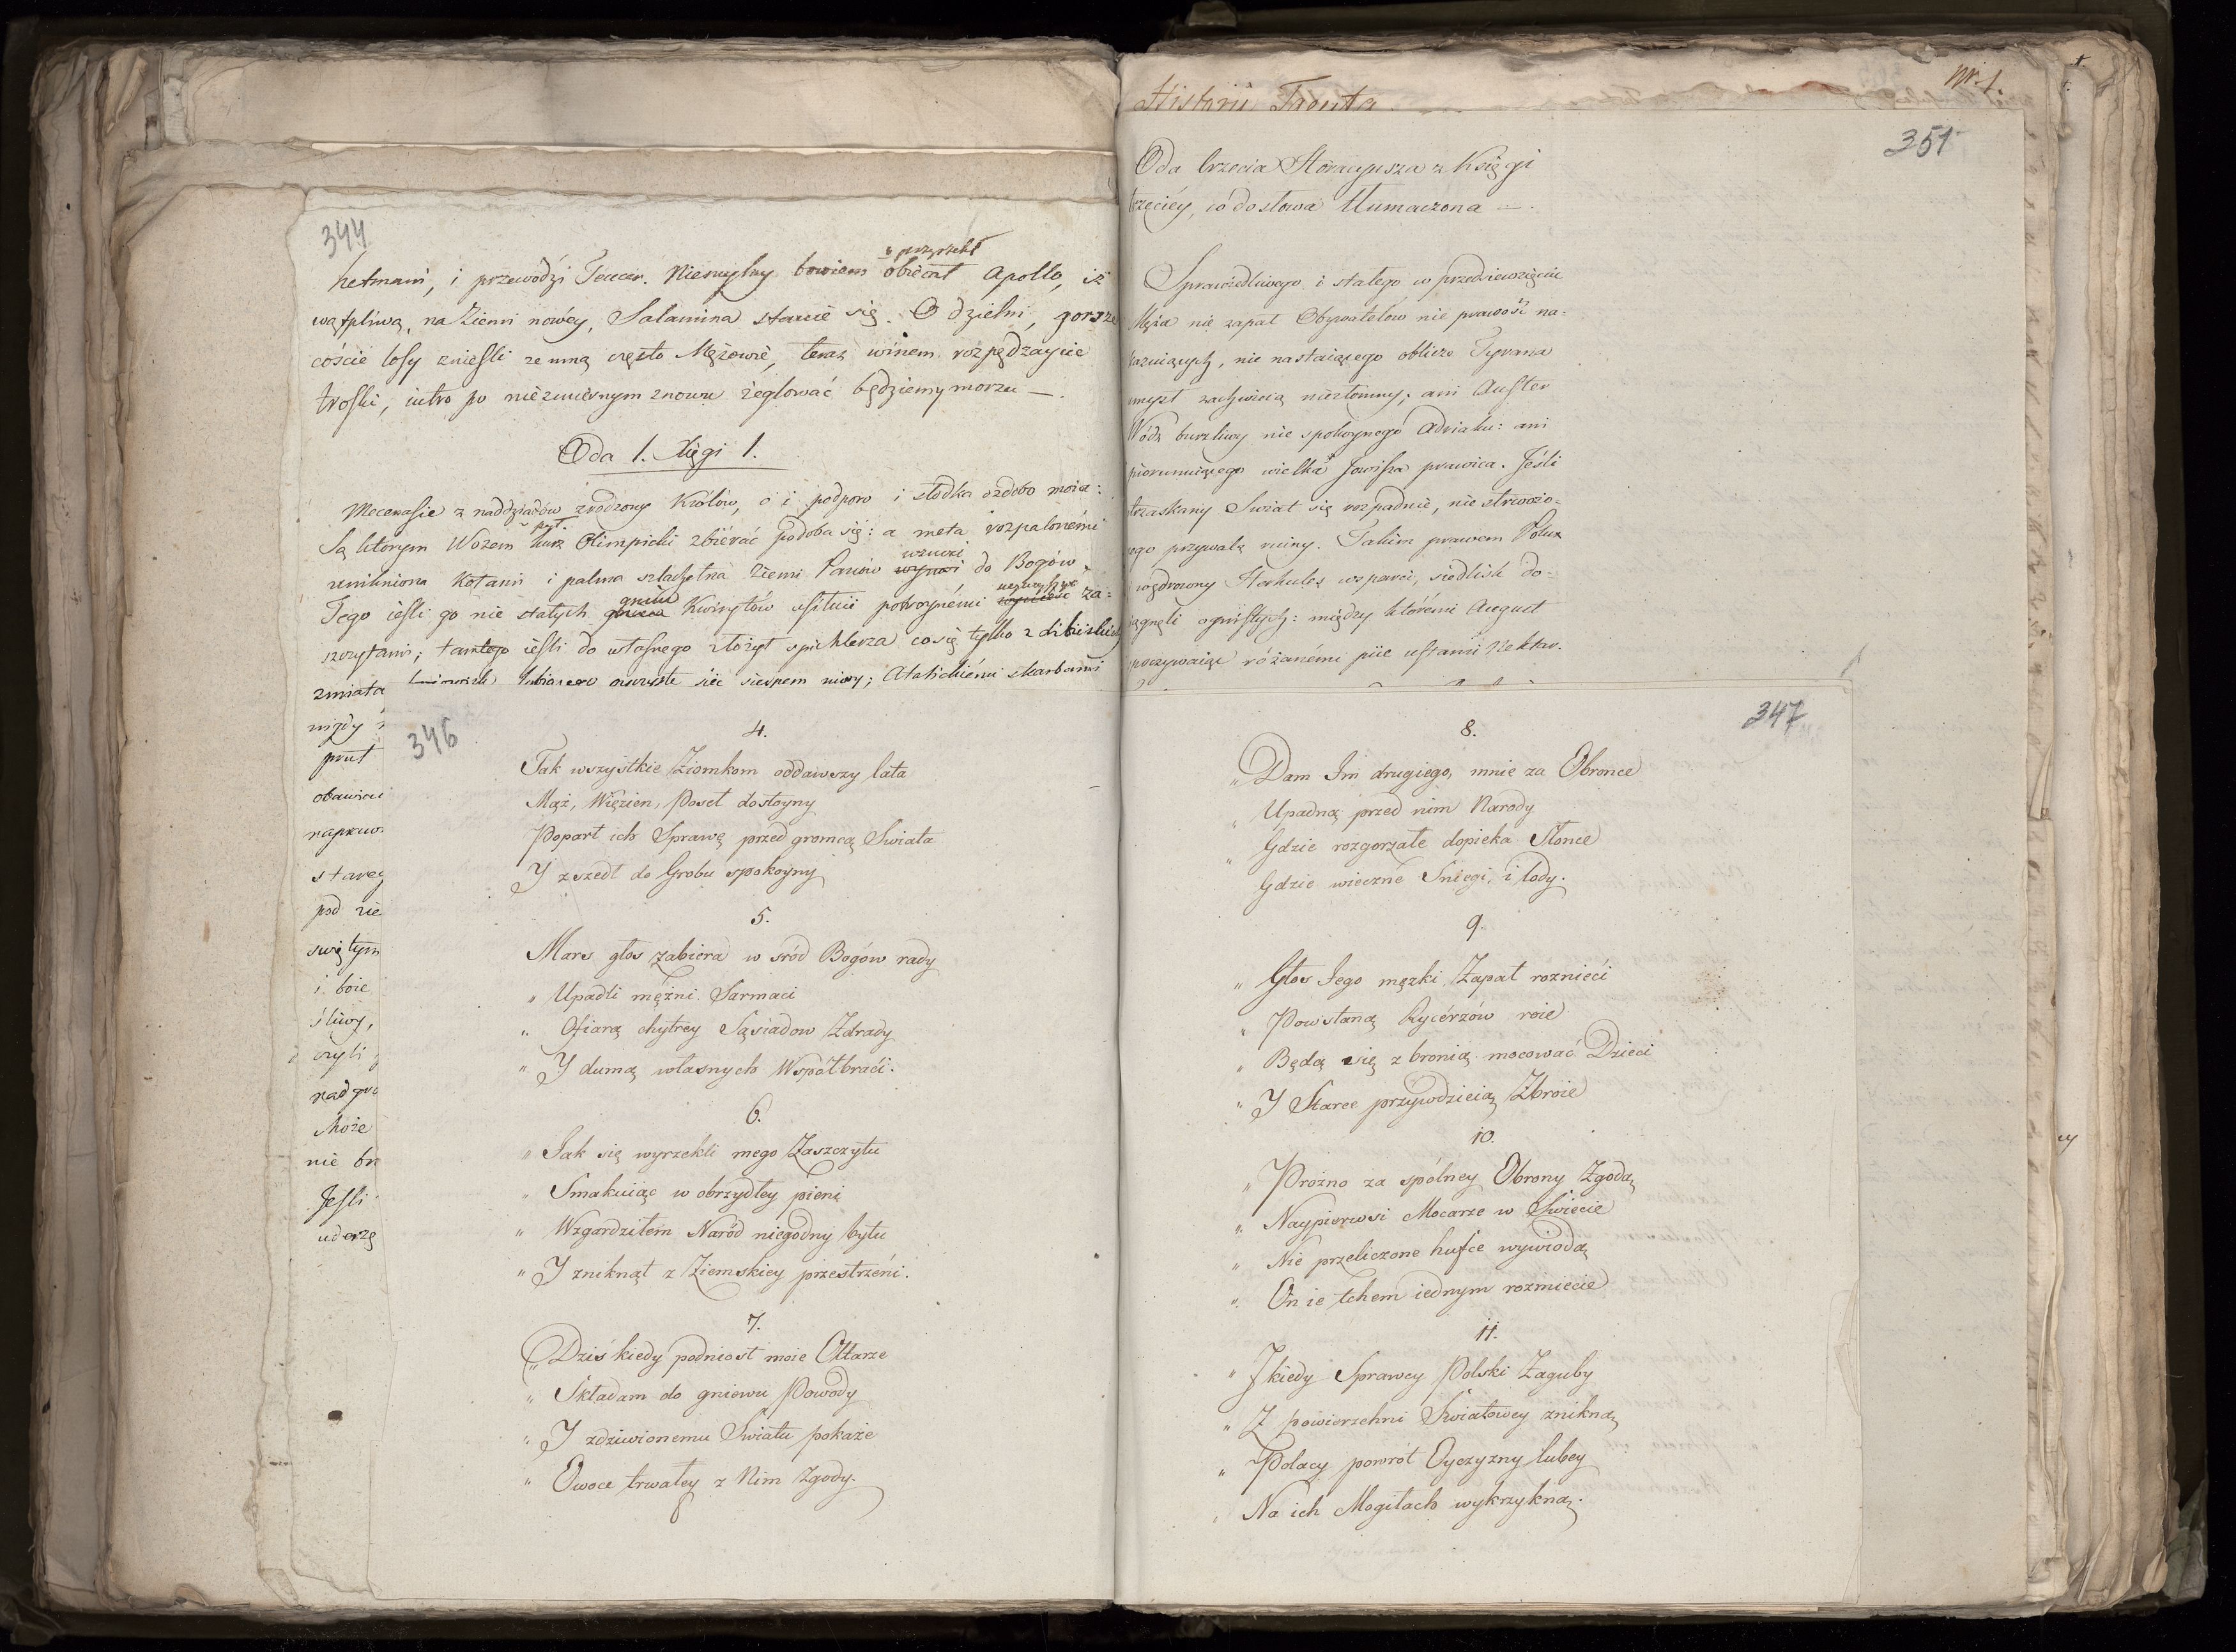 344
u przyrzekł
hetmani, i przewodzi Teucer. Nieomylny bowiem obiecał Apollo, iż
wątpliwą, na Ziemi nowéy, Salamina stanie się. O dzielni, gorsze
coście losy znieśli ze mną często Mężowie, teraz winem rozpędzaycie
troski, iutro po niezmiernym znowu żeglować będziemy morzu —.
Oda 1. Xięgi 1.
Mecenasie z naddziadów zrodzony Królów, o i podporo i słodka ozdobo moia:
Są ktorym Wozem kurz Olimpicki zbierać podoba się: a meta rozpalonémi
unikniona Kołami i palma szlachetna Ziemi Panów wynosi wznosi do Bogów.
Tego ieśli go nie stałych gmin Kwirytów usiłuie potroynémi za=
szczytami; tamtego ieśli do własnego złożył spichlerza co się tylko z Libiiskich
zmiata lubiącego oyczyste siec sierpem niwy; Atalickiémi skarbami
nigdy
prut
obawiai
stareg
pod zie
świętym
i boie
śliwy,
czyli
nad gro
Może
nie br
Jeśli
uderzę
346
4.
Tak wszystkie Ziomkom oddawszy lata
Mąż, Więzien, Poseł dostoyny
Poparł ich Sprawę przed gromcą Swiata
Y zszedł do Grobu spokoyny
5.
Mars głos zabiera w śród Bogów rady
„ Upadli mężni Sarmaci
„ Ofiarą chytrey Sąsiadow Zdrady
„ Y dumą własnych Współbraći.
6.
„ Jak się wyrzekli mego Zaszczytu
„ Smakuiąc w obrzydłey pieni
„ Wzgardziłem Naród niegodny bytu
„ Y zniknął z Ziemskiey przestrzéni.
7.
„ Dziś kiedy podniosł moie Ołtarze
„ Składam do gniewu Powody
„ Y zdziwionemu Swiatu pokaże
„ Owoce trwałey z Nim Zgody.
Historii Tacyta
N. 1.
351
Oda trzecia Horacyusza z Księgi
trzęciéy, có do słowa tłumaczona —.
Sprawiedliwego i stałego w przedsiewzięciu
Męża nie zapał Obywatelów nie prawość na=
kazuiących, nie nastaiącego oblicze Tyrana
umysł zachwieią niezłomny; ani Auster
Wódz burzliwy nie spokoynego Adriaku: ani
piorunuiącego wielka Jowisza prawica. Jeśli
trzaskany Swiat się rozpadnie, nie strwożo=
ego przywalą ruiny. Takim prawem Polux
wędrowny Herkules wsparci, siedlisk do=
iągnęli ognistych: między któremi August
poczywaiąc różanémi piie ustami Nektar.
347
8.
„ Dam Im drugiego, mnie za Obronce
„ Upadną przed nim Narody
„ Gdzie rozgorzałe dopieka Słonce
Gdzie wieczne Sniegi, i lody.
9.
„ Głos Jego męzki Zapał roznieći
„ Powstaną Rycérzów roie
„ Będą się z bronią mocować Dzieci
„ Y Starce przywdzieią Zbroie
10.
„ Prożno za spólney Obrony Zgodą
„ Naypierwsi Mocarze w Swiecie
„ Nie przeliczone hufce wywiodą
„ On ie tchem iednym rozmiecie
11.
„ I kiedy Sprawcy Polski Zaguby
„ Z powierzchni Swiatowey znikną
„ Polacy powrót Oyczyzny lubey
„ Na ich Mogiłach wykrzykną.